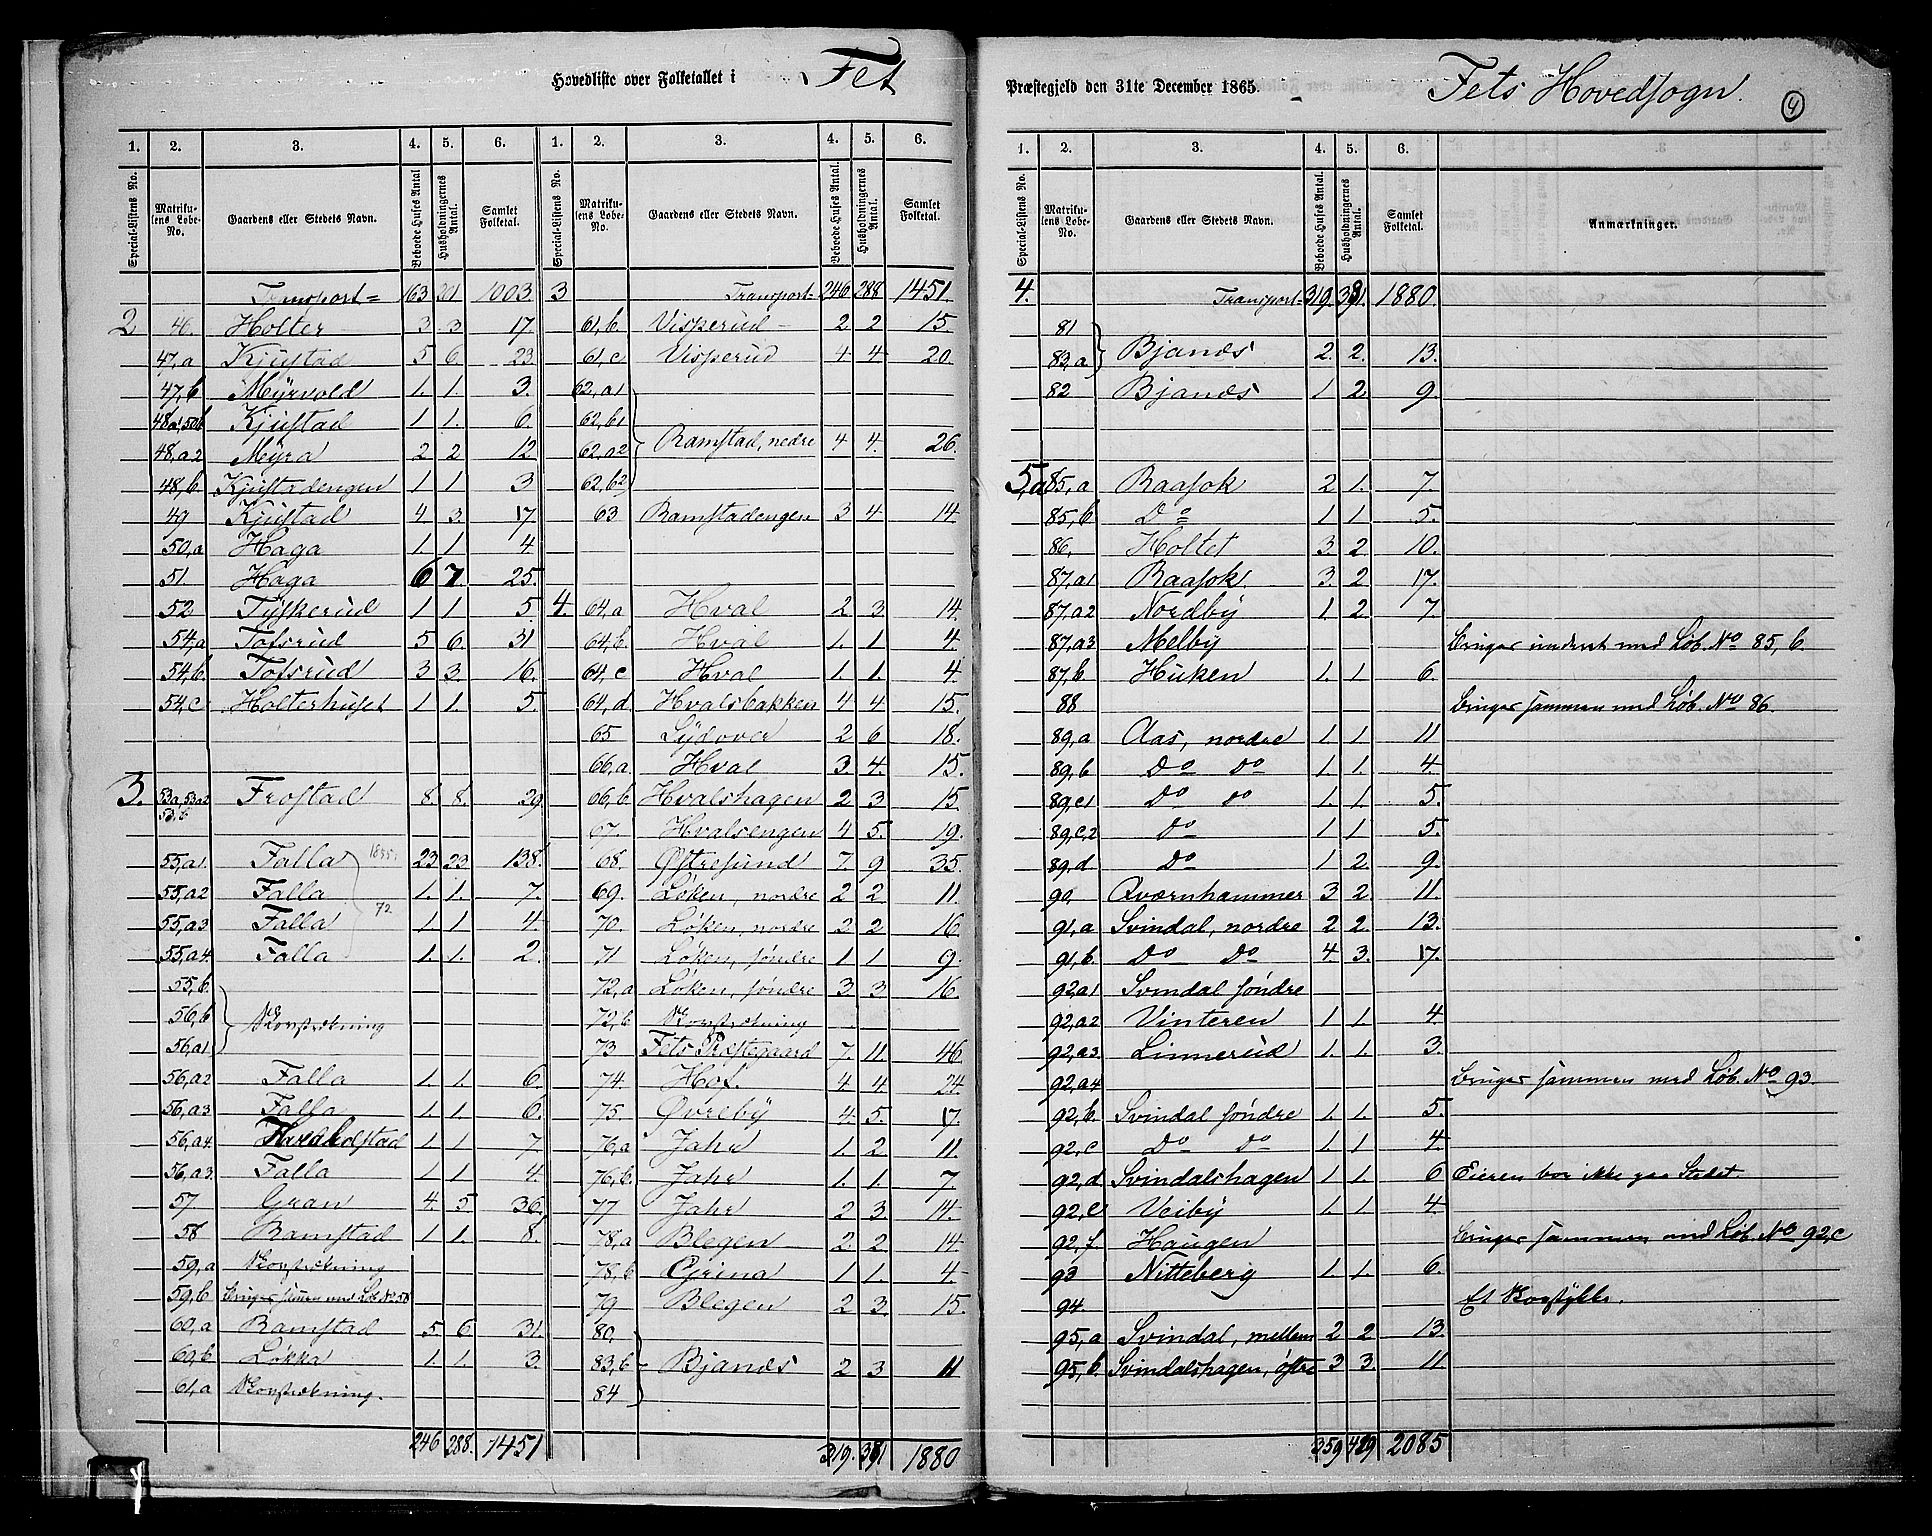 Hovedliste over Folketallet i Fet
1. 2. 3. 4. 5. 6. 1. 2. 3. 4. 5. 6.
Special-Listens No. Matrikulens Løbe-No. Gaardens eller Stedets Navn. Beboede Huses Antal Husholdningernes Antal. Samlet Folketal. Special-Listens No. Matrikulens Løbe-No. Gaardens eller Stedets Navn. Beboede Huses Antal. Husholdningernes Antal. Samlet Folketal.
Transport= 163 201 1003
2 46. Holter 3 3 17
47,a Kjustad 5 6. 23
47,b Myrvold 1. 1. 3.
48a1,50b Kjustad 1 1. 6.
48,a2 Myra 2 2 12
48,b Kjustadengen 1 1 3
49 Kjustad 4. 3. 17
50,a Haga 1. 1 4
51. Haga 6 7. 25.
52 Tyskerud 1 1 5.
54,a Tofsrud 5 6. 31
54,b Tofsrud 3 3. 16.
54,c Holterhuset 1 1. 5.
3. 53a1,53a2 53,b Frostad 8. 8. 29
55,a1. Falla 23 23 138.
55,a2 Falla 1. 1. 7.
72.
55,a3 Falla 1 1 4.
55,a4. Falla 1. 1. 2.
55,b.
56,b Skovstrækning
56,a1
56,a2 Falla 1. 1. 6.
56,a3 Falla 1 1. 6.
56,a4. 1 1. 7.
56,a3. Falla 1 1. 4.
57. Gran 4. 5 36.
58 Ramstad 1 1. 8.
59,a Skovstrækning
59,b bruges sammen med Løb. No 58
60,a Ramstad 5. 6. 31.
60,b Løkka 1. 1. 3.
61,a Skovstrækning.
246 288. 1451
3 Transport- 246 288 1451.
61,b Visperud 2 2 15.
61,c Visperud 4 4 20.
62,a1
62,b1
62,a2 Ramstad, nedre 4 4. 26.
62,b2
63 Ramstadengen 3 4 14.
4. 64,a Hval 2 3 14.
64,b. Hval 1. 1 4.
64,c Hval 1. 1 4.
64,d. Hvalsbakken 4 4 15.
65 Lydover 2 6 18.
66,a Hval 3. 4. 15.
66,b Hvalshagen 2 3 15
67. Hvalsengen 4 5. 19.
68. Østresund 7. 9 35.
69. Løken, nordre 2 2 11
70. Løken, nordre 3 2 16
71 Løken, søndre 1 1 9.
72,a Løken, søndre 3. 3. 16.
72,b Skovstrækning
73 Fets Præstegaard 7. 11. 46
74. Hof. 4 4 24.
75. Øvreby 4. 5. 17.
76,a Jahr 1. 2 11.
76,b. Jahr 1. 1 7.
77 Jahr 2 3. 14.
78,a Blegen 2. 2. 14.
78,b Gjrina 1 1. 4.
79 Blegen 2 3. 15.
80.
83,b Bjanes 2 3. 11
84
319. 391 1880
Præstegjeld den 31te December 1865. Fets Hovedsogn. 4
1. 2. 3. 4. 5. 6.
Special-Listens No. Matrikulens Løbe-No. Gaardens eller Stedets Navn. Beboede Huses Antal. Husholdningernes Antal. Samlet Folketal. Anmærkninger.
4. Transport- 319. 391. 1880.
81
83,a Bjanes 2. 2. 13.
82 Bjanes 1 2 9.
5,a 85,a Raasok 2 1. 7.
85,b Do 1 1 5.
86. Holtet 3. 2 10.
87,a1 Raasok 3. 2 17.
87,a2 Nordby 1 2 7.
87,a3 Melby bruges under et med Løb. No 85,b.
87,b Huken 1. 1 6.
88 bruges sammen med Løb. No 86.
89,a Aas, nordre 1. 1. 11
89,b Do Do 1 1. 4.
89,c1 Do Do 1. 1. 5.
89,c2 Do 1 1 5.
89,d Do 1 2 9.
90 Qværnhammer 3 2 11.
91,a Svindal, nordre 2 2 13.
91,b. Do Do 4 3. 17.
92,a1 Svindal søndre
92,a2 Vinteren 1 1. 4.
92,a3. Linnerud 1. 1. 3.
92,a4 bruges sammen med Løb. No 93.
92,b. Svindal søndre 1. 1. 5.
92,c Do Do 1. 1 4.
92,d Svindalshagen 1 1. 6 Eieren bor ikke paa Stedet.
92,e Veiby 1. 1. 4.
92,f. Haugen bruges sammen med Løb. No 92,c
93 Nitteberg 1. 1. 6.
94. Et Skovstykke.
95,a Svindal, mellem 2 2 13.
95,b. Svindalshagen, østre 3 3. 11
359 429 2085